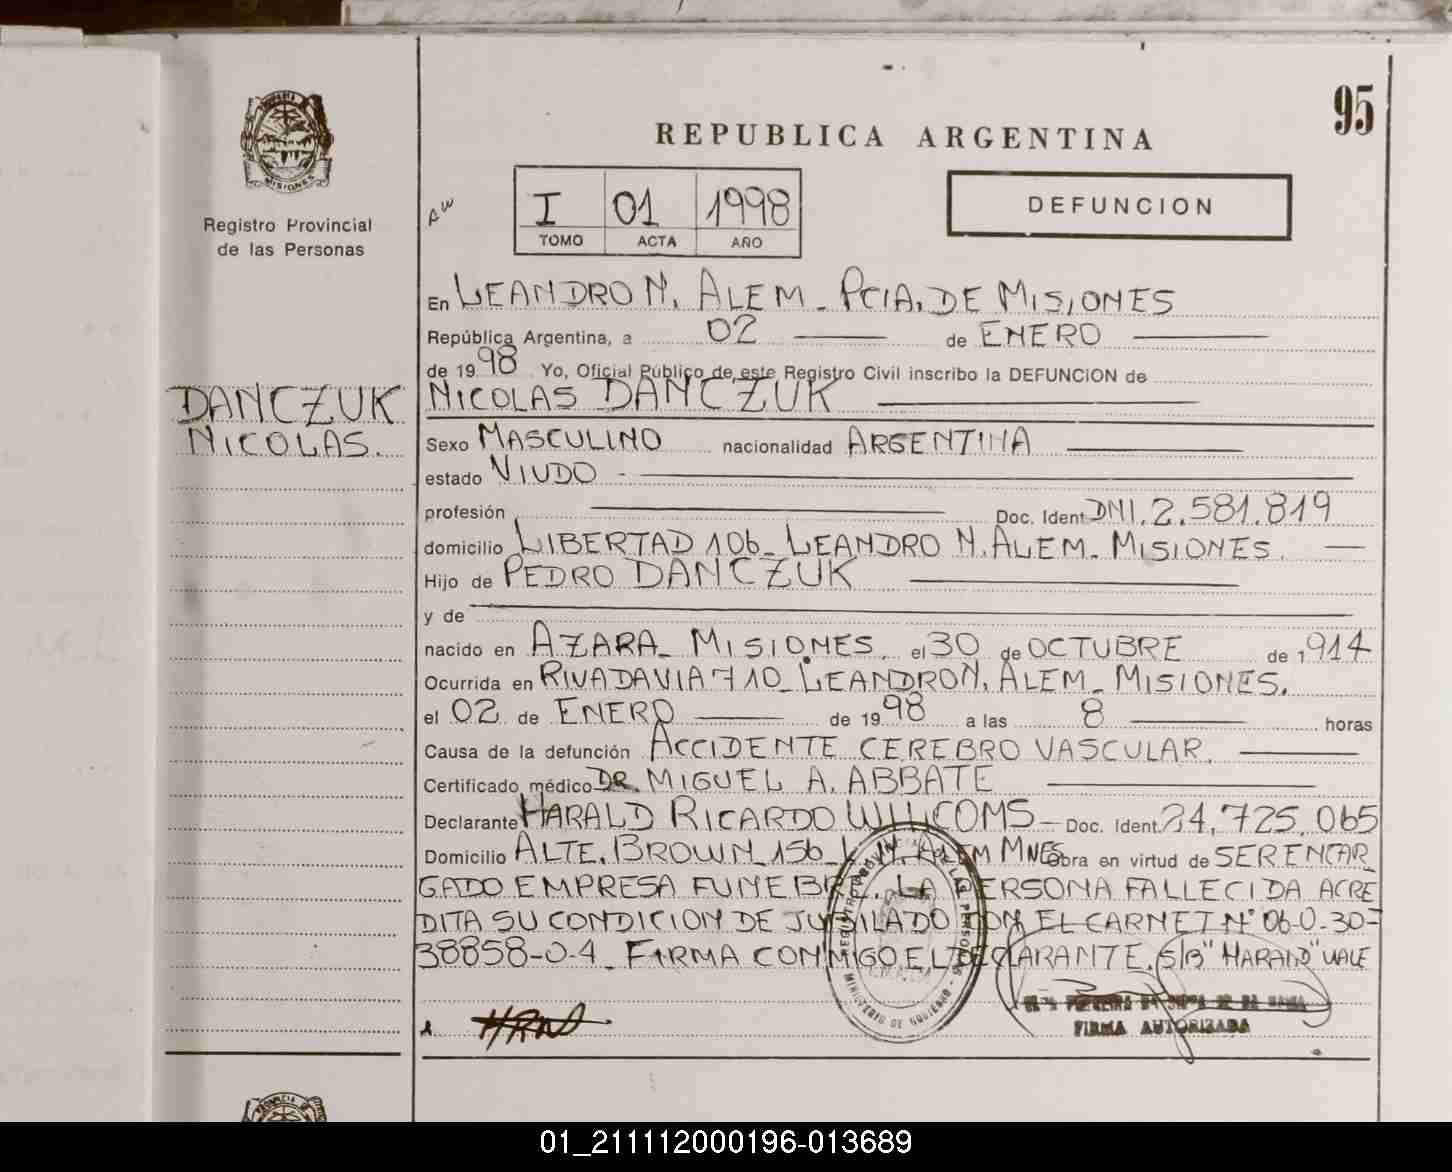 95
REPUBLICA ARGENTINA
PROVINCIA DE
MISIONES
Registro Provincial
de las Personas
I 01 1998
TOMO ACTA AÑO
DEFUNCION
En LEANDRO N. ALEM - PCIA. DE MISIONES
República Argentina, a 02 de ENERO
de 1998 Yo, Oficial Público de este Registro Civil inscribo la DEFUNCION de
DANCZUK
NICOLAS.
NICOLAS DANCZUK
Sexo MASCULINO nacionalidad ARGENTINA
estado VIUDO -
profesión Doc. Ident. DNI. 2.581.819
domicilio LIBERTAD 106 - LEANDRO N. ALEM - MISIONES.
Hijo de PEDRO DANCZUK
y de
nacido en AZARA - MISIONES. el 30 de OCTUBRE de 1914
Ocurrida en RIVADAVIA 710 - LEANDRO N. ALEM - MISIONES.
el 02 de ENERO de 1998 a las 8 horas
Causa de la defunción ACCIDENTE CEREBRO VASCULAR.
Certificado médico DR. MIGUEL A. ABBATE
Declarante HARALD RICARDO Doc. Ident. 24.725.065
Domicilio ALTE. BROWN 156 - L. N. ALEM MNES Obra en virtud de SER ENCAR
GADO EMPRESA FUNEBRE. LA PERSONA FALLECIDA ACRE
DITA SU CONDICION DE JUBILADO CON EL CARNET N° 06-0-30-
38858-0-4 - FIRMA CONMIGO EL DECLARANTE. S/B "HARALD" VALE
FIRMA AUTORIZADA
MINISTERIO DE GOBIERNO
01_211112000196-013689